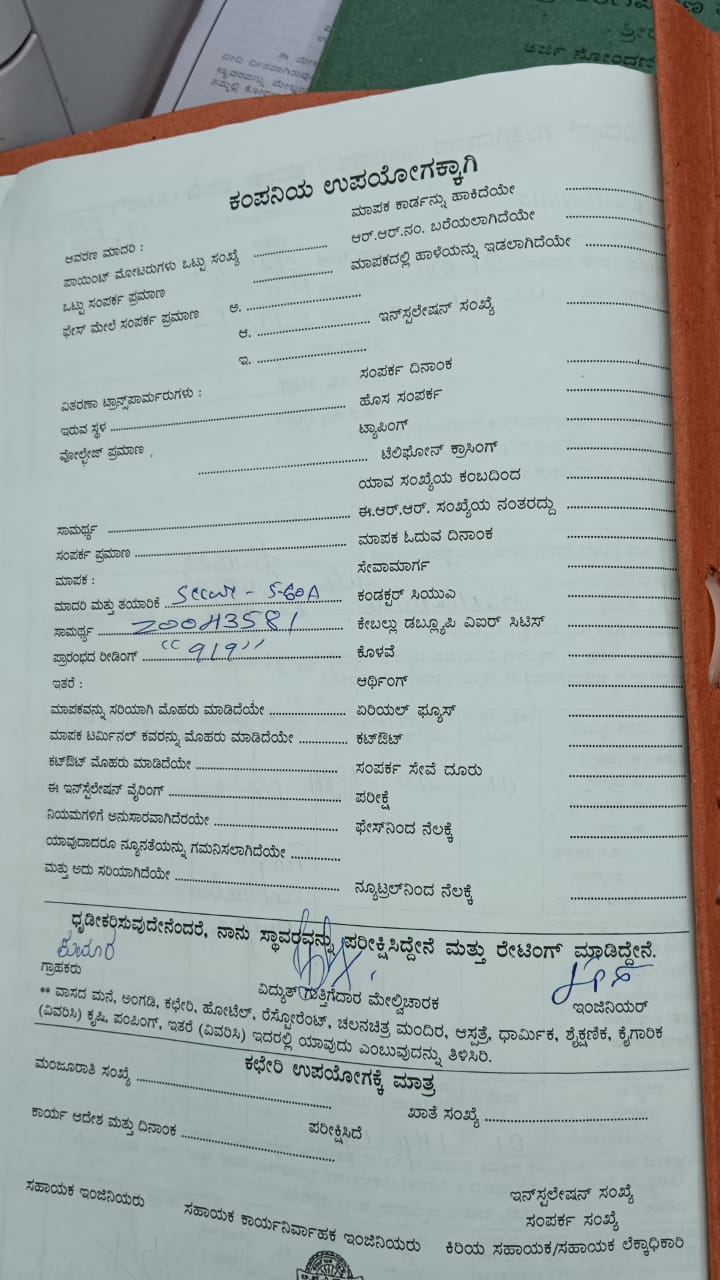 ಕಂಪನಿಯ ಉಪಯೋಗಕ್ಕಾಗಿ
ಆವರಣ ಮಾದರಿ :
ಪಾಯಿಂಟ್ ಮೋಟರುಗಳು ಒಟ್ಟು ಸಂಖ್ಯೆ ....................
ಒಟ್ಟು ಸಂಪರ್ಕ ಪ್ರಮಾಣ ....................
ಫೇಸ್ ಮೇಲೆ ಸಂಪರ್ಕ ಪ್ರಮಾಣ ಅ. ....................
ಆ. ....................
ಇ. ....................
ವಿತರಣಾ ಟ್ರಾನ್ಸ್‌ಪಾರ್ಮರುಗಳು :
ಇರುವ ಸ್ಥಳ ....................
ವೋಲ್ಟೇಜ್ ಪ್ರಮಾಣ ....................
ಸಾಮರ್ಥ್ಯ ....................
ಸಂಪರ್ಕ ಪ್ರಮಾಣ ....................
ಮಾಪಕ :
ಮಾದರಿ ಮತ್ತು ತಯಾರಿಕೆ Secure - 5-60A
ಸಾಮರ್ಥ್ಯ 20043581
ಪ್ರಾರಂಭದ ರೀಡಿಂಗ್ "919"
ಇತರೆ :
ಮಾಪಕವನ್ನು ಸರಿಯಾಗಿ ಮೊಹರು ಮಾಡಿದೆಯೇ ....................
ಮಾಪಕ ಟರ್ಮಿನಲ್ ಕವರನ್ನು ಮೊಹರು ಮಾಡಿದೆಯೇ ....................
ಕಟ್‌ಔಟ್ ಮೊಹರು ಮಾಡಿದೆಯೇ ....................
ಈ ಇನ್‌ಸ್ಟಲೇಷನ್ ವೈರಿಂಗ್ ....................
ನಿಯಮಗಳಿಗೆ ಅನುಸಾರವಾಗಿದೆರಯೇ ....................
ಯಾವುದಾದರೂ ನ್ಯೂನತೆಯನ್ನು ಗಮನಿಸಲಾಗಿದೆಯೇ ....................
ಮತ್ತು ಅದು ಸರಿಯಾಗಿದೆಯೇ ....................
ಮಾಪಕ ಕಾರ್ಡನ್ನು ಹಾಕಿದೆಯೇ ....................
ಆರ್.ಆರ್.ನಂ. ಬರೆಯಲಾಗಿದೆಯೇ ....................
ಮಾಪಕದಲ್ಲಿ ಹಾಳೆಯನ್ನು ಇಡಲಾಗಿದೆಯೇ ....................
ಇನ್‌ಸ್ಪಲೇಷನ್ ಸಂಖ್ಯೆ ....................
ಸಂಪರ್ಕ ದಿನಾಂಕ ....................
ಹೊಸ ಸಂಪರ್ಕ ....................
ಟ್ಯಾಪಿಂಗ್ ....................
ಟೆಲಿಫೋನ್ ಕ್ರಾಸಿಂಗ್ ....................
ಯಾವ ಸಂಖ್ಯೆಯ ಕಂಬದಿಂದ ....................
ಈ.ಆರ್.ಆರ್. ಸಂಖ್ಯೆಯ ನಂತರದ್ದು ....................
ಮಾಪಕ ಓದುವ ದಿನಾಂಕ ....................
ಸೇವಾಮಾರ್ಗ ....................
ಕಂಡಕ್ಟರ್ ಸಿಯುಎ ....................
ಕೇಬಲ್ಲು ಡಬ್ಲ್ಯೂಪಿ ವಿಐರ್ ಸಿಟಿಸ್ ....................
ಕೊಳವೆ ....................
ಆರ್ಥಿಂಗ್ ....................
ಏರಿಯಲ್ ಫ್ಯೂಸ್ ....................
ಕಟ್‌ಔಟ್ ....................
ಸಂಪರ್ಕ ಸೇವೆ ದೂರು ....................
ಪರೀಕ್ಷೆ ....................
ಫೇಸ್‌ನಿಂದ ನೆಲಕ್ಕೆ ....................
ನ್ಯೂಟ್ರಲ್‌ನಿಂದ ನೆಲಕ್ಕೆ ....................
ಧೃಡೀಕರಿಸುವುದೇನೆಂದರೆ, ನಾನು ಸ್ಥಾವರವನ್ನು ಪರೀಕ್ಷಿಸಿದ್ದೇನೆ ಮತ್ತು ರೇಟಿಂಗ್ ಮಾಡಿದ್ದೇನೆ.
ಕುಮಾರ
ಗ್ರಾಹಕರು ವಿದ್ಯುತ್ ಗುತ್ತಿಗೆದಾರ ಮೇಲ್ವಿಚಾರಕ ಇಂಜಿನಿಯರ್
** ವಾಸದ ಮನೆ, ಅಂಗಡಿ, ಕಛೇರಿ, ಹೋಟೆಲ್, ರೆಸ್ಟೋರೆಂಟ್, ಚಲನಚಿತ್ರ ಮಂದಿರ, ಆಸ್ಪತ್ರೆ, ಧಾರ್ಮಿಕ, ಶೈಕ್ಷಣಿಕ, ಕೈಗಾರಿಕ
(ವಿವರಿಸಿ) ಕೃಷಿ, ಪಂಪಿಂಗ್, ಇತರೆ (ವಿವರಿಸಿ) ಇದರಲ್ಲಿ ಯಾವುದು ಎಂಬುವುದನ್ನು ತಿಳಿಸಿರಿ.
ಕಛೇರಿ ಉಪಯೋಗಕ್ಕೆ ಮಾತ್ರ
ಮಂಜೂರಾತಿ ಸಂಖ್ಯೆ .................... ಖಾತೆ ಸಂಖ್ಯೆ ....................
ಕಾರ್ಯ ಆದೇಶ ಮತ್ತು ದಿನಾಂಕ .................... ಪರೀಕ್ಷಿಸಿದೆ
ಇನ್‌ಸ್ಪಲೇಷನ್ ಸಂಖ್ಯೆ
ಸಂಪರ್ಕ ಸಂಖ್ಯೆ
ಸಹಾಯಕ ಇಂಜಿನಿಯರು ಸಹಾಯಕ ಕಾರ್ಯನಿರ್ವಾಹಕ ಇಂಜಿನಿಯರು ಕಿರಿಯ ಸಹಾಯಕ/ಸಹಾಯಕ ಲೆಕ್ಕಾಧಿಕಾರಿ